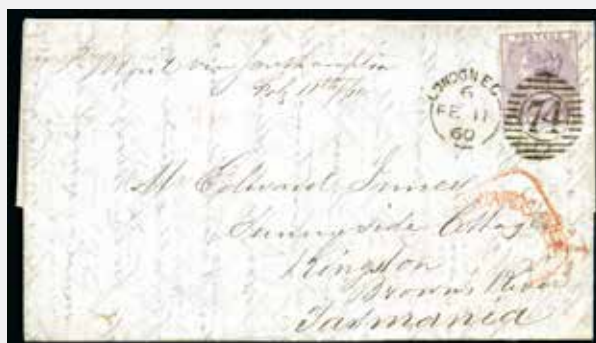 POSTAGE
via Southampton
Feb 11th/60
LONDON E.C
6
FE 11
60
74
Mr Edward Innes
Sunnyside Cottage
Kingston
Brown's River
Tasmania